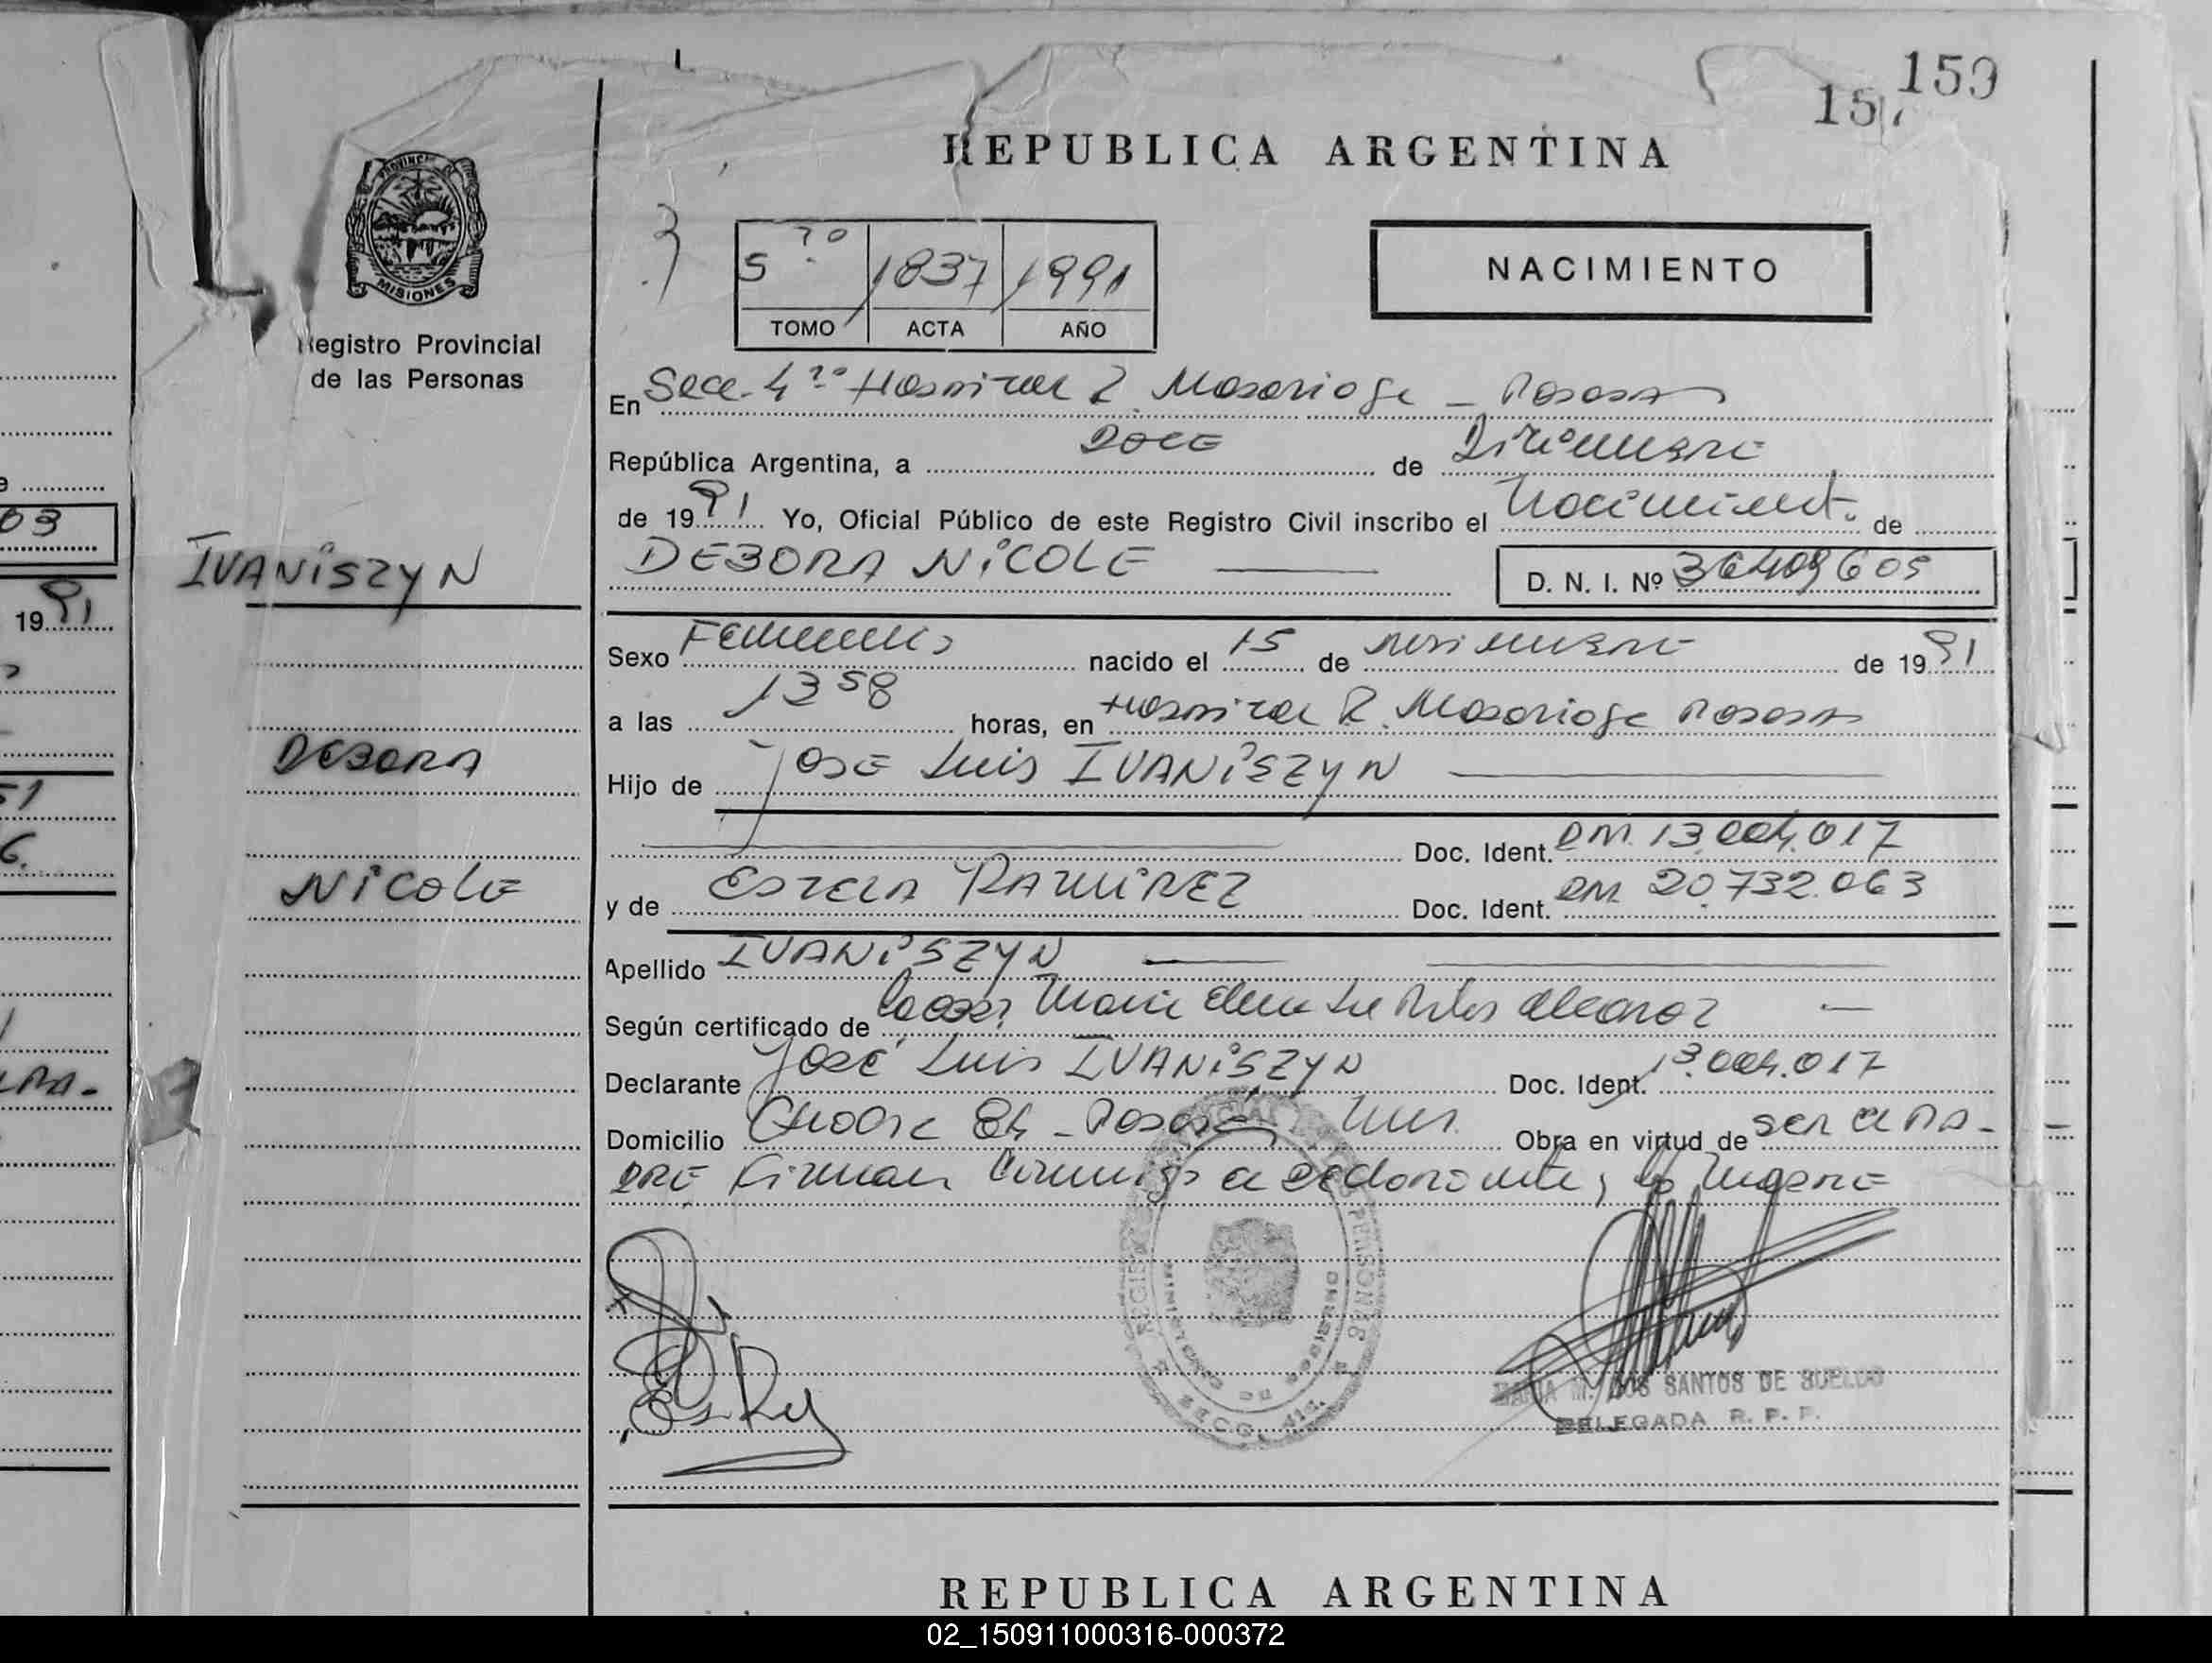 159
REPUBLICA ARGENTINA
PROVINCIA
MISIONES
Registro Provincial
de las Personas
5to 1837 1991
TOMO ACTA AÑO
NACIMIENTO
En Secc. 4ta Hospital R. Madariaga - Posadas
República Argentina, a DOCE de Diciembre
de 1991 Yo, Oficial Público de este Registro Civil inscribo el Nacimiento de
DEBORA NICOLE
D. N. I. Nº 36409605
IVANISZYN
DEBORA
NICOLE
Sexo Femenino nacido el 15 de noviembre de 1991
a las 13 58 horas, en Hospital R. Madariaga Posadas
Hijo de JOSE Luis IVANISZYN
Doc. Ident. DNI. 13.004.017
y de ESTELA RAMIREZ Doc. Ident. DNI 20.732.063
Apellido IVANISZYN
Según certificado de Maria Elena
Declarante José Luis IVANISZYN Doc. Ident. 13.004.017
Domicilio 84 - Posadas Mnes. Obra en virtud de ser el PA-
DRE Firman conmigo el declarante y la madre
SECC. 4ta.
MARIA M. DOS SANTOS DE SUELDO
DELEGADA R. P. P.
REPUBLICA ARGENTINA
02_150911000316-000372